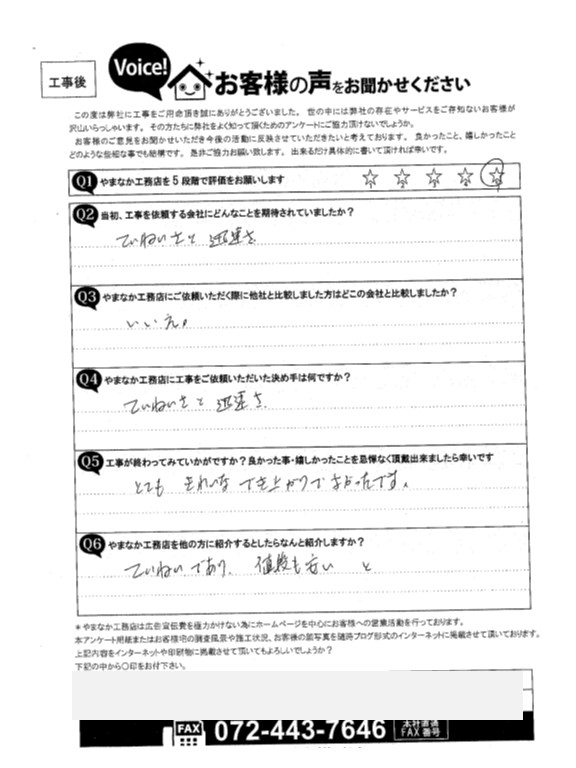 工事後
Voice!
お客様の声をお聞かせください
この度は弊社に工事をご用命頂き誠にありがとうございました。 世の中には弊社の存在やサービスをご存知ないお客様が
沢山いらっしゃいます。 その方たちに弊社をよく知って頂くためのアンケートにご協力頂けないでしょうか。
お客様のご意見をお聞かせいただき今後の活動に反映させていただきたいと考えております。 良かったこと、嬉しかったこと
どのような些細な事でも結構です。 是非ご協力お願い致します。 出来るだけ具体的に書いて頂ければ幸いです。
Q1 やまなか工務店を5段階で評価をお願いします ☆ ☆ ☆ ☆ ☆
Q2 当初、工事を依頼する会社にどんなことを期待されていましたか？
ていねいさと 迅速さ
Q3 やまなか工務店にご依頼いただく際に他社と比較しました方はどこの会社と比較しましたか？
いいえ。
Q4 やまなか工務店に工事をご依頼いただいた決め手は何ですか？
ていねいさと 迅速さ
Q5 工事が終わってみていかがですか？良かった事・嬉しかったことを忌憚なく頂戴出来ましたら幸いです
とても きれいな でき上がりで よかったです。
Q6 やまなか工務店を他の方に紹介するとしたらなんと紹介しますか？
ていねいであり、 値段も安い と
＊やまなか工務店は広告宣伝費を極力かけない為にホームページを中心にお客様への営業活動を行っております。
本アンケート用紙またはお客様宅の調査風景や施工状況、お客様の顔写真を随時ブログ形式のインターネットに掲載させて頂いております。
上記内容をインターネットや印刷物に掲載させて頂いてもよろしいでしょうか？
下記の中から〇印をお付下さい。
FAX 072-443-7646 本社直通
FAX番号